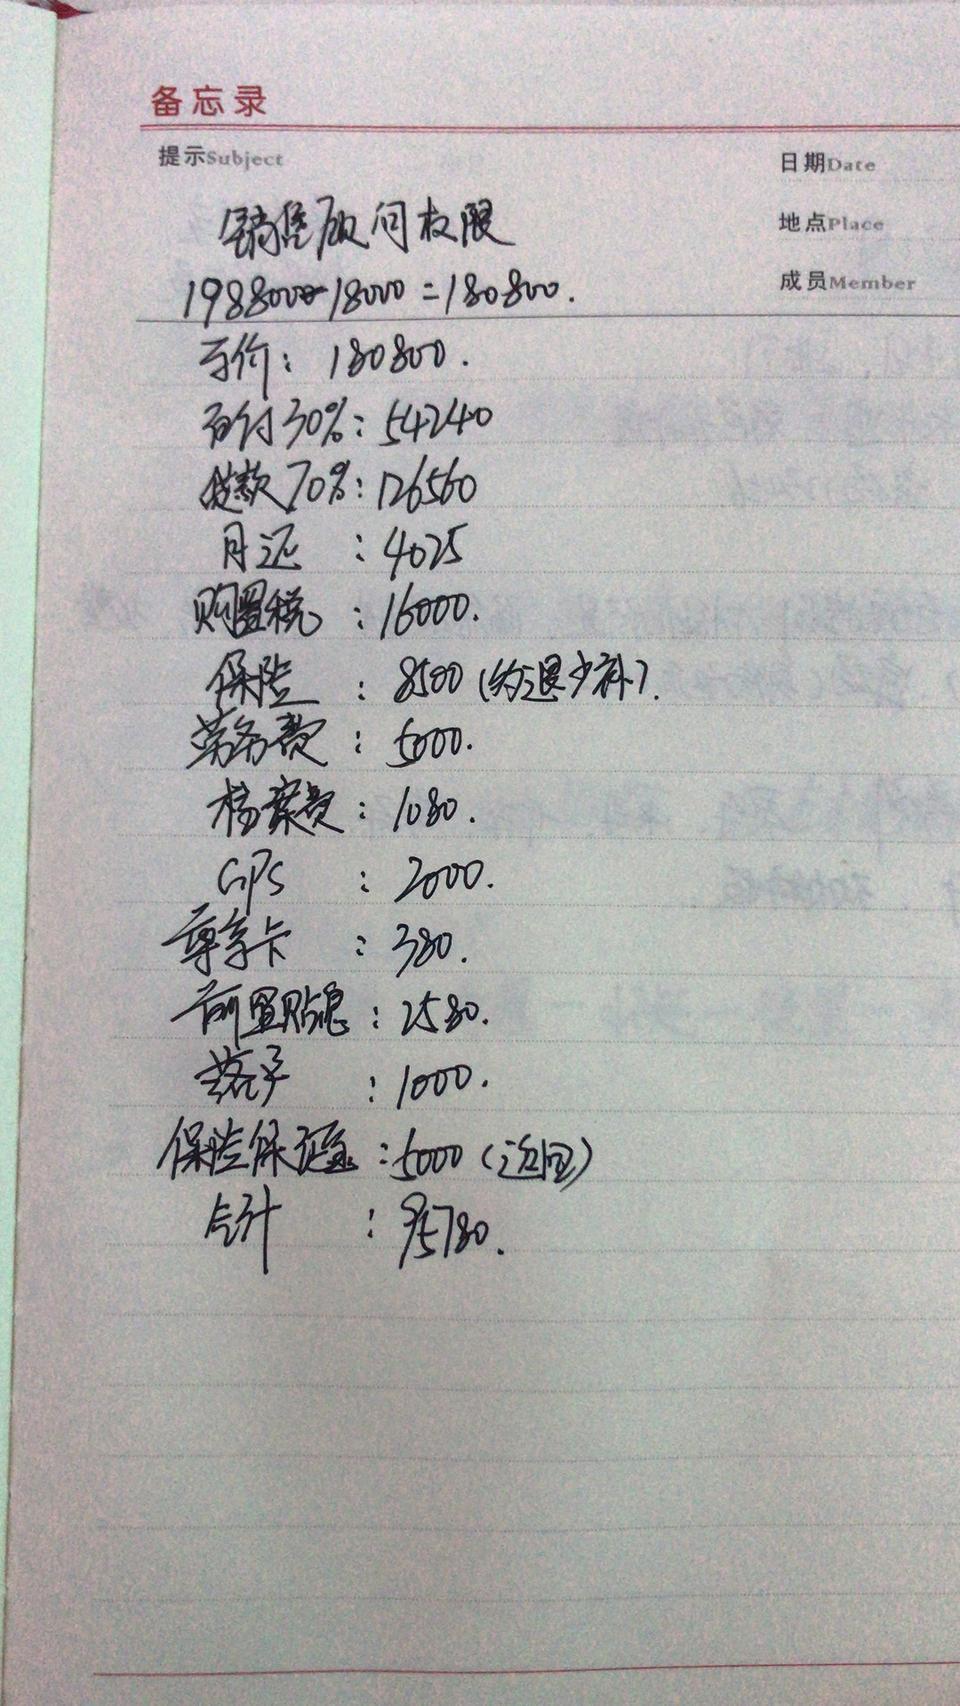 备忘录
提示Subject
日期Date
地点Place
成员Member
销售顾问权限
198800-18000=180800.
车价：180800.
首付30%：54240
贷款70%：126560
月还：4025
购置税：16000.
保险：8500（多退少补）.
劳务费：5000.
档案费：1080.
GPS：2000.
尊享卡：380.
前置贴息：2580.
落户：1000.
保险保证金：5000（返回）
合计：95780.